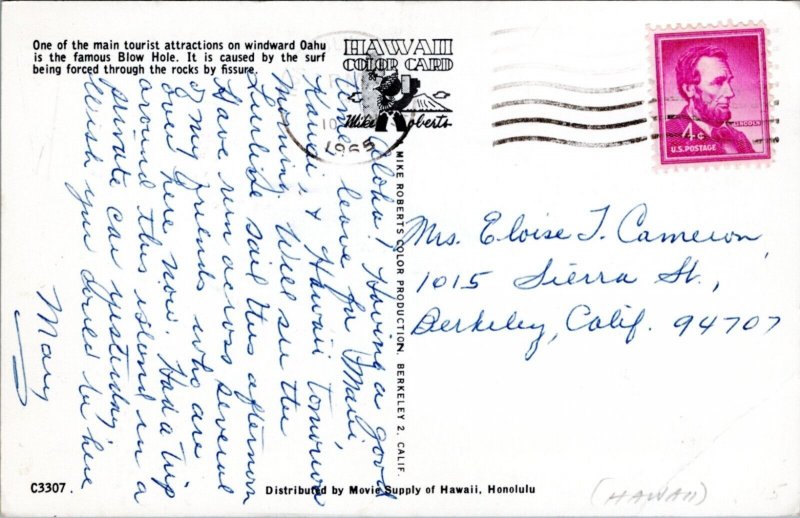 One of the main tourist attractions on windward Oahu
is the famous Blow Hole. It is caused by the surf
being forced through the rocks by fissure.
HAWAII
COLOR CARD
Mike Roberts
10
1965
LINCOLN
4¢
U.S. POSTAGE
Aloha! Having a good
time, leave for Maui,
Kauai, & Hawaii tomorrow
morning. Will see the
Lurline sail this afternoon
Have run across several
of my friends who are
over here now. Had a trip
around this island in a
private car yesterday
Wish you could be here
Mary
MIKE ROBERTS COLOR PRODUCTION, BERKELEY 2, CALIF.
Mrs. Eloise T. Cameron,
1015 Sierra St.,
Berkeley, Calif. 94707
C3307.
Distributed by Movie Supply of Hawaii, Honolulu
(HAWAII)